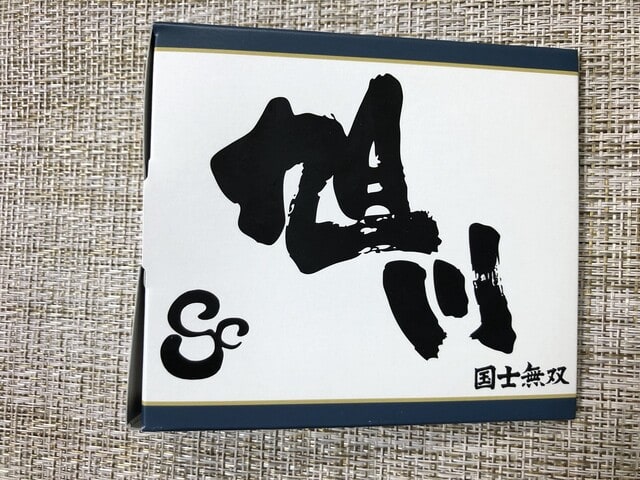 旭川
Sc
国士無双